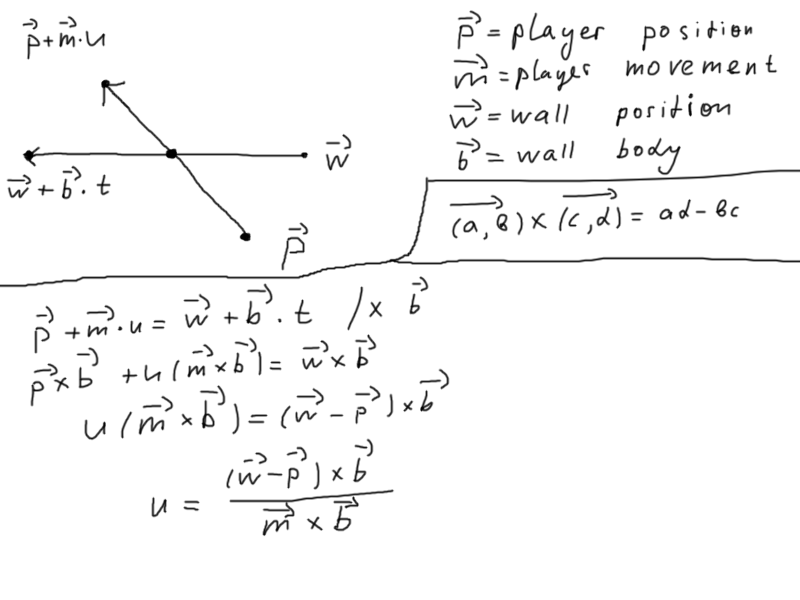 p⃗+m⃗·u
w⃗
w⃗+b⃗·t
p⃗
p⃗=player position
m⃗=player movement
w⃗=wall position
b⃗=wall body
(a,b)⃗×(c,d)⃗=ad-bc
p⃗+m⃗·u=w⃗+b⃗·t /×b⃗
p⃗×b⃗+u(m⃗×b⃗)=w⃗×b⃗
u(m⃗×b⃗)=(w⃗-p⃗)×b⃗
u=(w⃗-p⃗)×b⃗
m⃗×b⃗